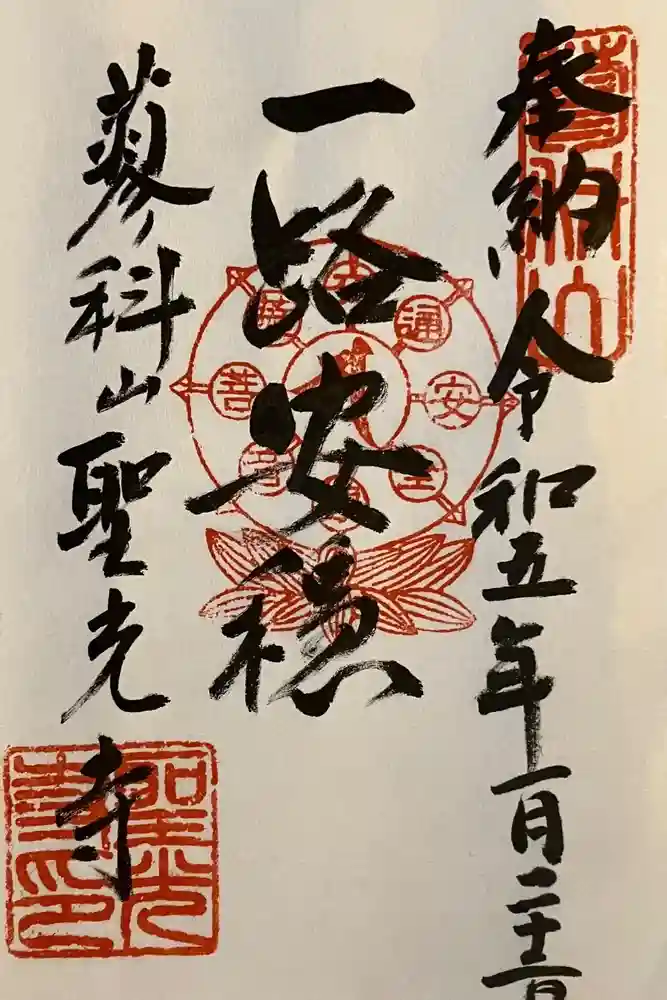 奉納 令和五年一月二十
一路安穏
蓼科山聖光寺
通
安
全
聖光寺印